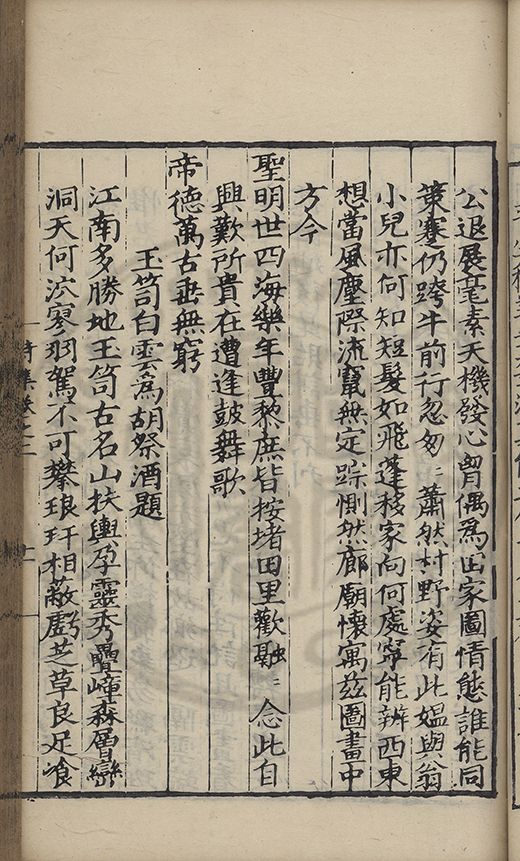 公退展毫素天機發心胷偶爲出家圖情態誰能同
策蹇仍跨牛前行忽匆〻蕭然村野姿有此媪與翁
小兒亦何知短髮如飛蓬移家向何處寧能辨西東
想當風塵際流竄無定踪惻然廊廟懷寓茲圖畫中
方今
聖明世四海樂年豐黎庶皆按堵田里歡融〻念此自
興歎所貴在遭逢鼓舞歌
帝德萬古垂無窮
玉笥白雲爲胡祭酒題
江南多勝地玉笥古名山扶輿孕靈秀疊嶂森層巒
洞天何泬寥羽駕不可攀琅玕相蔽虧芝草良足飡